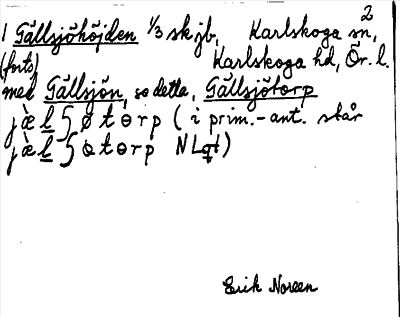 2
1 Gällsjöhöjden 1/3 sk.jb, Karlskoga sn,
(forts) Karlskoga hd, Ör. l.
med Gällsjön, se detta, Gällsjötorp
jæ̀lʃøtɵrp (i prim.-ant. står
jæ̀lʃɵtɵrp NLqt)
Erik Noreen